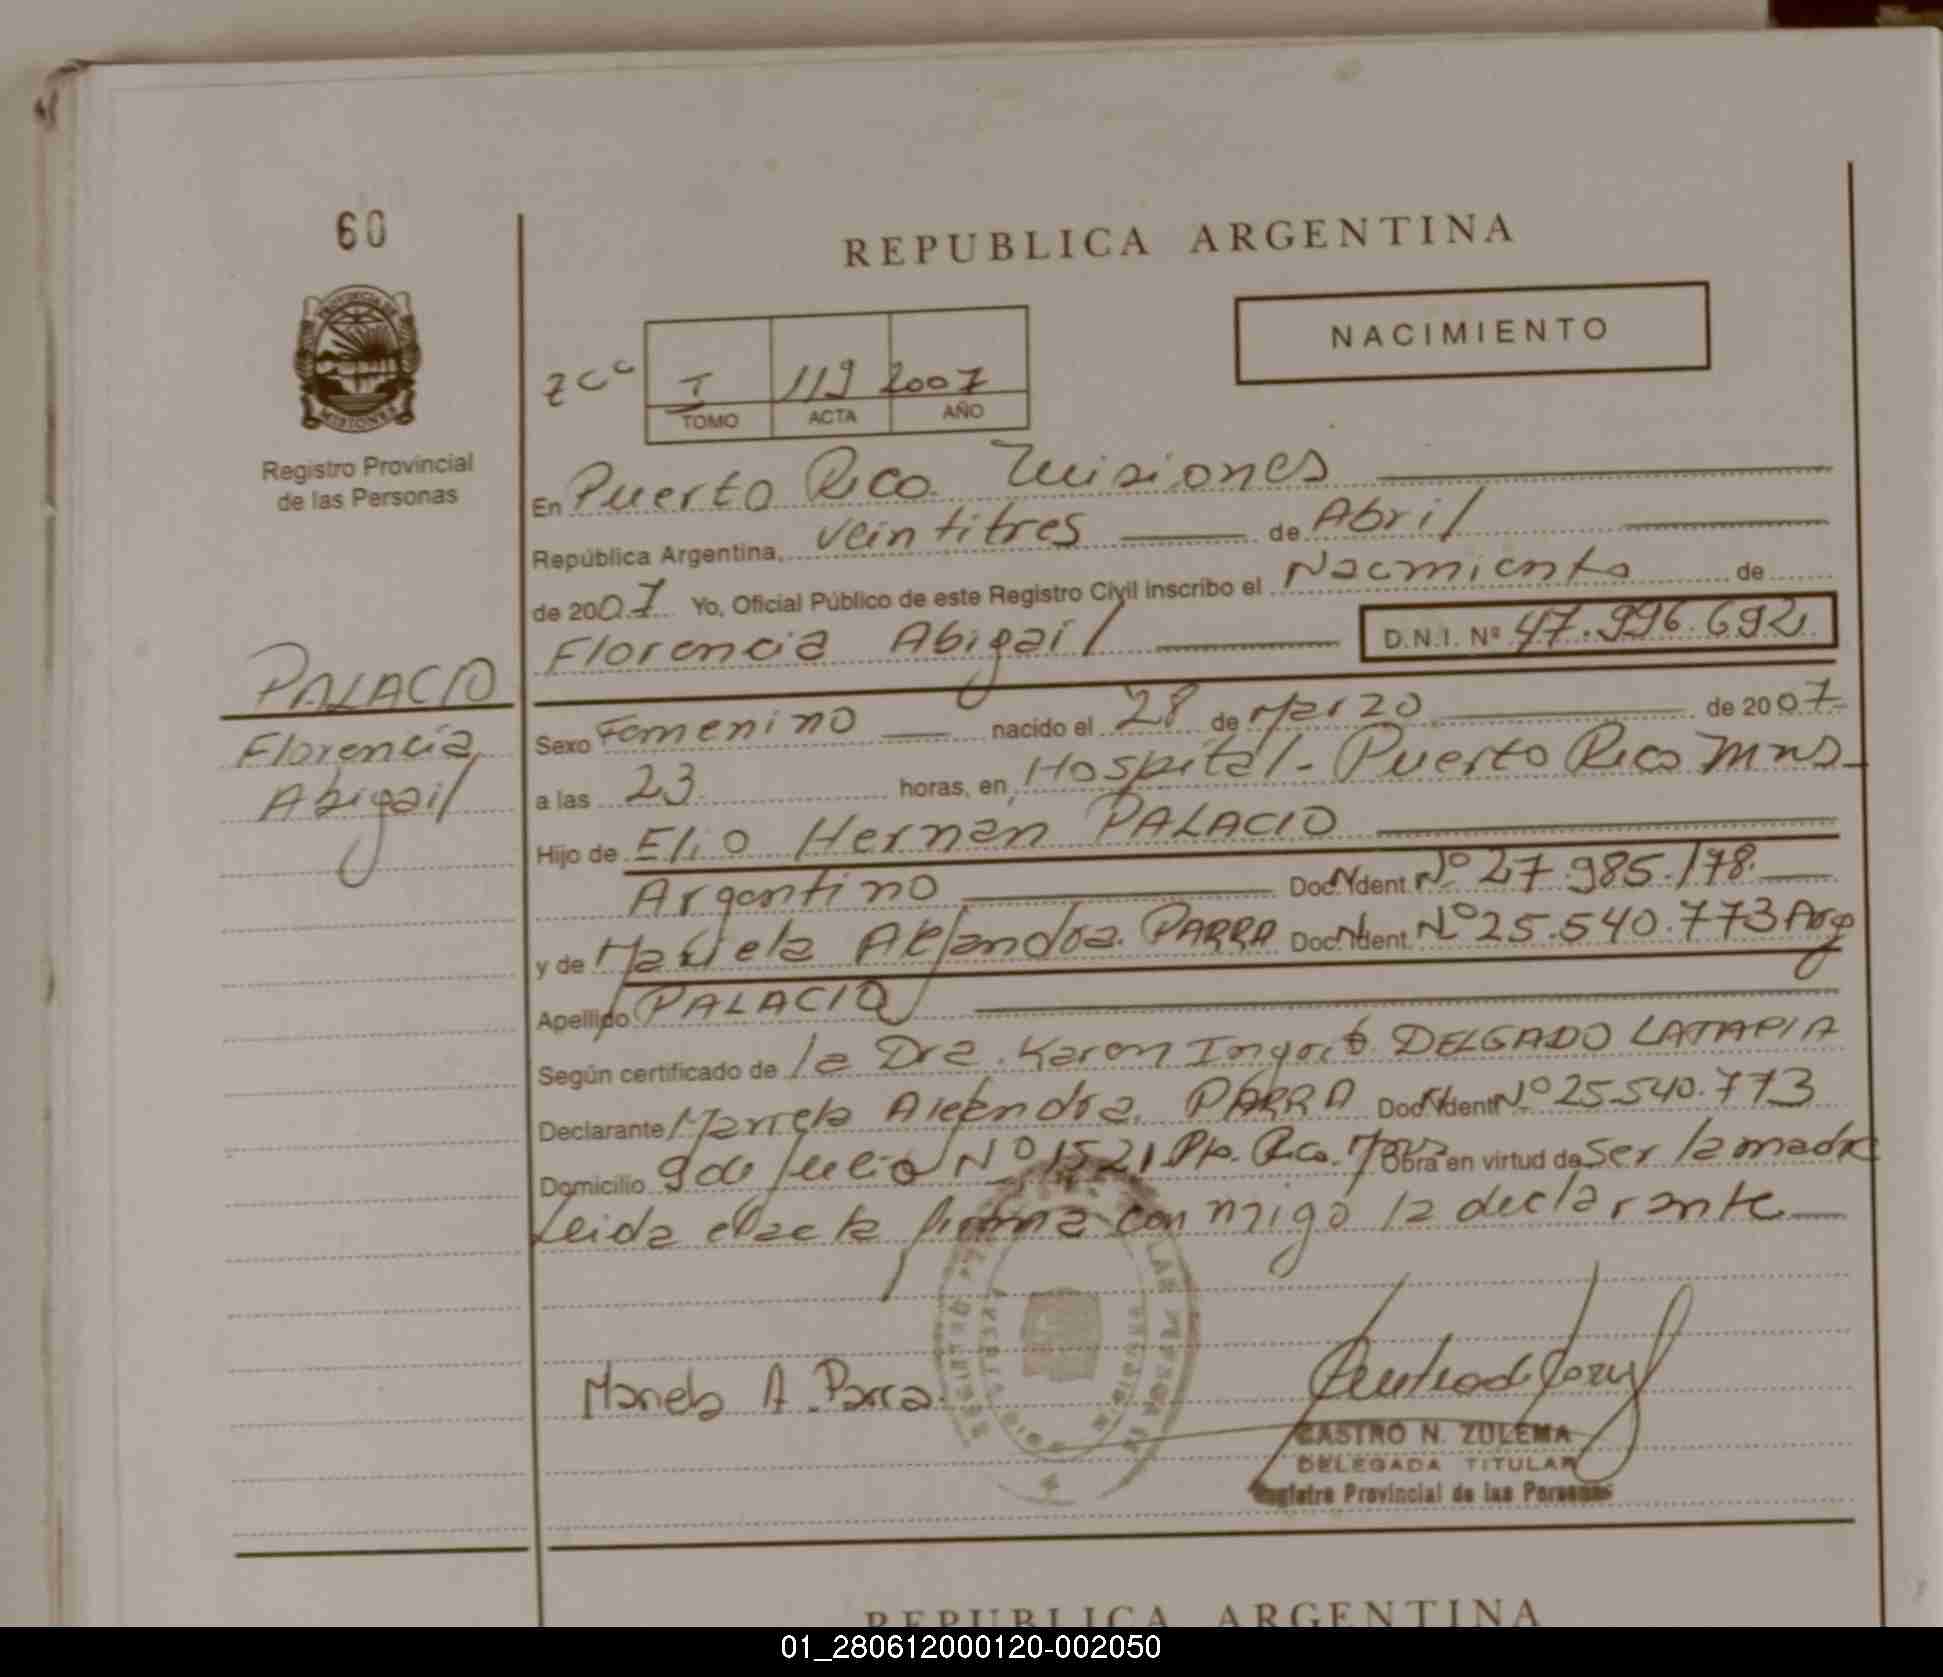 60
REPUBLICA ARGENTINA
PROVINCIA DE
MISIONES
NACIMIENTO
I 119 2007
TOMO ACTA AÑO
Registro Provincial
de las Personas
En Puerto Rico Misiones
República Argentina, veintitres de Abril
de 2007 Yo, Oficial Público de este Registro Civil inscribo el Nacmiento de
Florencia Abigail D.N.I. Nº 47.996.692
PALACIO
Florencia
Abigail
Sexo Femenino nacido el 28 de Marzo de 2007
a las 23 horas, en Hospital - Puerto Rico Mns
Hijo de Elio Hernan PALACIO
Argentino Doc. Ident. Nº 27.985.178
y de Mariela Alejandra PARRA Doc. Ident. Nº 25.540.773 Arg
Apellido PALACIO
Según certificado de la Dra. Karen Ingrit DELGADO LATAPIA
Declarante Mariela Alejandra PARRA Doc. Ident. Nº 25.540.773
Domicilio 9 de Julio Nº 1521 Pto. Rco. Mns Obra en virtud de ser la madre
Leida el acta firma con migo la declarante
Mariela A. Parra
CASTRO N. ZULEMA
DELEGADA TITULAR
Registro Provincial de las Personas
REPUBLICA ARGENTINA
01_280612000120-002050